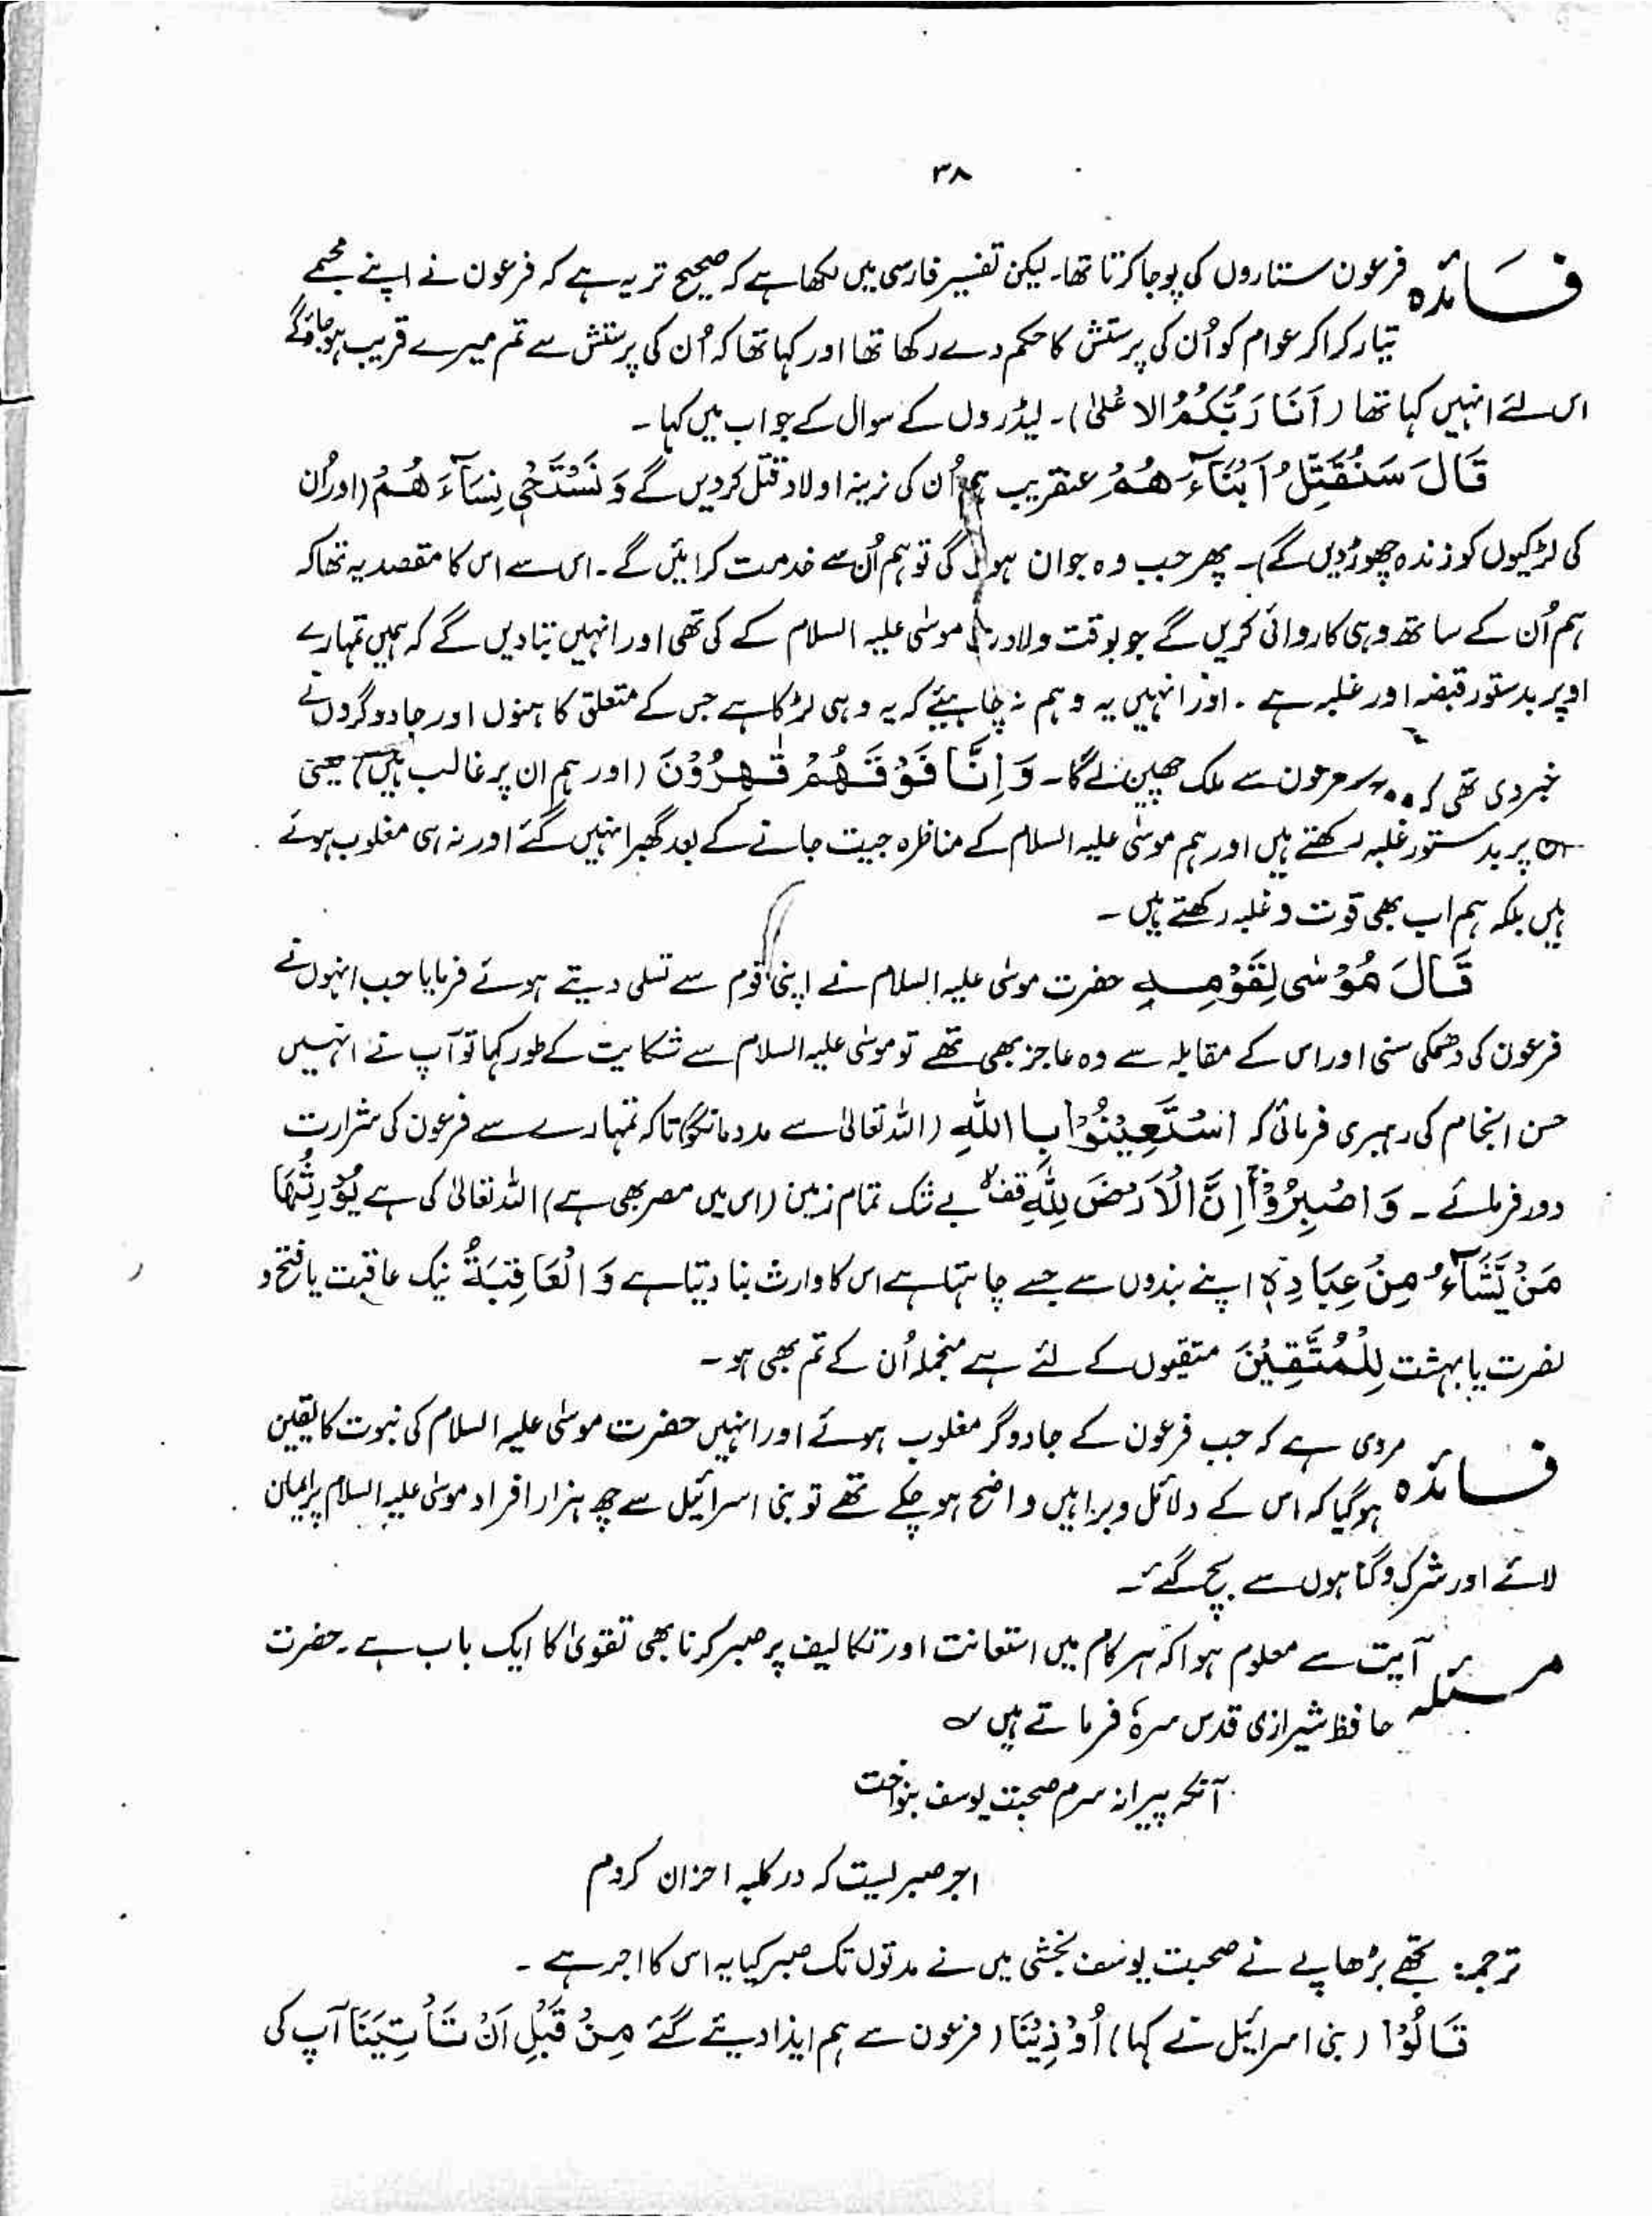 ۳۸
فائدہ فرعون ستاروں کی پوجا کرتا تھا۔ لیکن تفسیر فارسی میں لکھا ہے کہ صحیح تر یہ ہے کہ فرعون نے اپنے مجسمے
تیار کرا کر عوام کو اُن کی پرستش کا حکم دے رکھا تھا اور کہا تھا کہ اُن کی پرستش سے تم میرے قریب ہو جاؤ گے
اس لئے انہیں کہا تھا (اَنَا رَبُّکُمُ الاعْلیٰ)۔ لیڈروں کے سوال کے جواب میں کہا۔
قَالَ سَنُقَتِّلُ اَبْنَآءَھُمْ عنقریب ہم اُن کی نرینہ اولاد قتل کر دیں گے وَ نَسْتَحْیٖ نِسَآءَ ھُمْ (اور اُن
کی لڑکیوں کو زندہ چھوڑ دیں گے)۔ پھر جب وہ جوان ہوں گی تو ہم اُن سے خدمت کرائیں گے۔ اس سے اس کا مقصد یہ تھا کہ
ہم اُن کے ساتھ وہی کاروائی کریں گے جو بوقت ولادت موسٰی علیہ السلام کے کی تھی اور انہیں بتا دیں گے کہ ہمیں تمہارے
اوپر بدستور قبضہ اور غلبہ ہے۔ اور انہیں یہ وہم نہ چاہیئے کہ یہ وہی لڑکا ہے جس کے متعلق کاہنوں اور جادوگروں نے
خبر دی تھی کہ فرعون سے ملک چھین لے گا۔ وَ اِنَّا فَوْقَھُمْ قٰھِرُوْنَ (اور ہم ان پر غالب ہیں) یعنی
ان پر بدستور غلبہ رکھتے ہیں اور ہم موسٰی علیہ السلام کے مناظرہ جیت جانے کے بعد گھبرا نہیں گئے اور نہ ہی مغلوب ہوئے
ہیں بلکہ ہم اب بھی قوت و غلبہ رکھتے ہیں۔
قَالَ مُوْسٰی لِقَوْمِہٖ حضرت موسٰی علیہ السلام نے اپنی قوم سے تسلی دیتے ہوئے فرمایا جب انہوں نے
فرعون کی دھمکی سنی اور اس کے مقابلہ سے وہ عاجز بھی تھے تو موسٰی علیہ السلام سے شکایت کے طور کہا تو آپ نے انہیں
حسن انجام کی رہبری فرمائی کہ اسْتَعِیْنُوْا بِاللّٰہِ (اللہ تعالیٰ سے مدد مانگو) تاکہ تمہارے سے فرعون کی شرارت
دور فرمائے۔ وَ اصْبِرُوْا ۚ اِنَّ الْاَرْضَ لِلّٰہِ قف بے شک تمام زمین (اس میں مصر بھی ہے) اللہ تعالیٰ کی ہے یُوْرِثُھَا
مَنْ یَّشَآءُ مِنْ عِبَادِہٖ اپنے بندوں سے جسے چاہتا ہے اس کا وارث بنا دیتا ہے وَ الْعَاقِبَۃُ نیک عاقبت یا فتح و
نصرت یا بہشت لِلْمُتَّقِیْنَ متقیوں کے لئے ہے منجملہ اُن کے تم بھی ہو۔
فائدہ مروی ہے کہ جب فرعون کے جادوگر مغلوب ہوئے اور انہیں حضرت موسٰی علیہ السلام کی نبوت کا یقین
ہو گیا کہ اس کے دلائل و براہیں واضح ہو چکے تھے تو بنی اسرائیل سے چھ ہزار افراد موسٰی علیہ السلام پر ایمان
لائے اور شرک و گناہوں سے بچ گئے۔
مسئلہ آیت سے معلوم ہوا کہ ہر کام میں استعانت اور تکالیف پر صبر کرنا بھی تقویٰ کا ایک باب ہے۔ حضرت
حافظ شیرازی قدس سرہٗ فرماتے ہیں ؎
آنکہ پیرانہ سرم صحبت یوسف بنواخت
اجر صبریست کہ در کلبہ احزان کردم
ترجمہ: مجھے بڑھاپے نے صحبت یوسف بخشی میں نے مدتوں تک صبر کیا یہ اس کا اجر ہے۔
قَالُوْا (بنی اسرائیل نے کہا) اُوْذِیْنَا (فرعون سے ہم ایذا دیئے گئے مِنْ قَبْلِ اَنْ تَاْتِیَنَا آپ کی